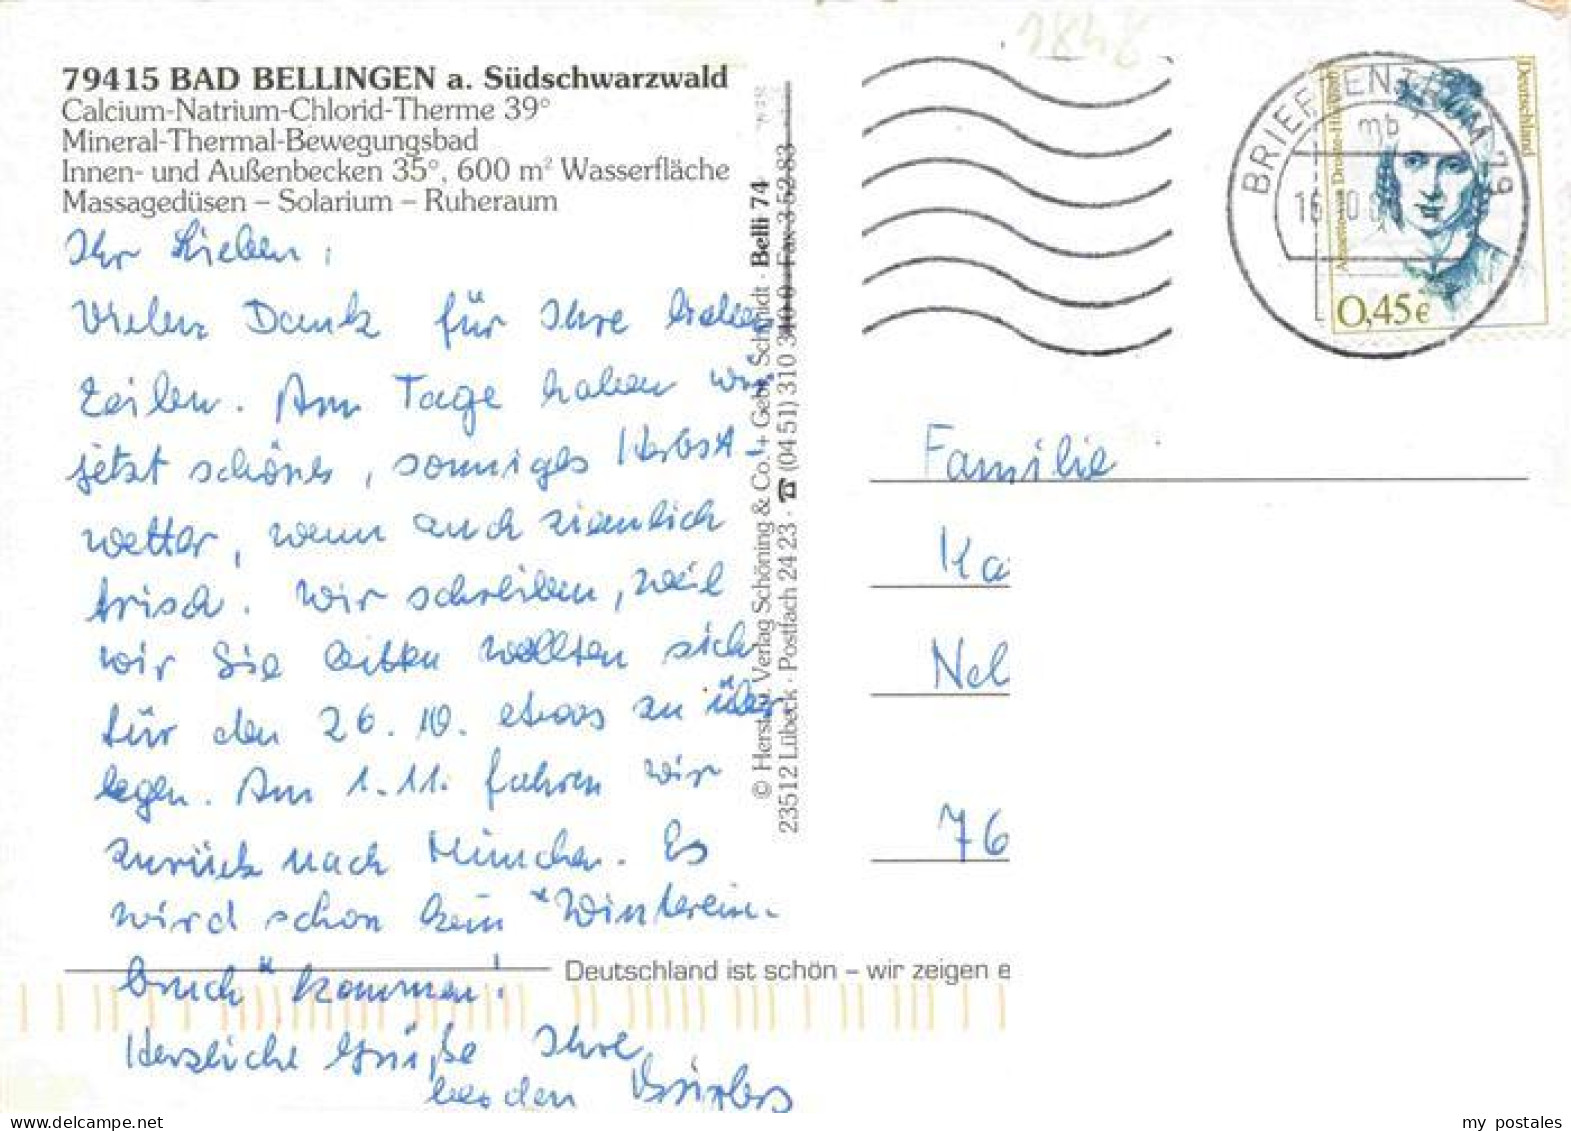 79415 BAD BELLINGEN a. Südschwarzwald
Calcium-Natrium-Chlorid-Therme 39°
Mineral-Thermal-Bewegungsbad
Innen- und Außenbecken 35°, 600 m² Wasserfläche
Massagedüsen – Solarium – Ruheraum
Ihr Lieben,
Vielen Dank für Ihre lieben
Zeilen. Am Tage haben wir
jetzt schönes, sonniges Herbst-
wetter, wenn auch ziemlich
frisch. Wir schreiben, weil
wir Sie bitten wollten sich
für den 26.10. etwas zu über
legen. Am 1.11. fahren wir
zurück nach München. Es
wird schon kein "Winterein-
bruch" kommen!
Herzliche Grüße Ihre
beiden
© Herst. u. Verlag Schöning & Co. + Gebr. Schmidt · Belli 74
23512 Lübeck · Postfach 24 23 · ☎ (04 51) 310 310-0 · Fax 3 52 83
Deutschland ist schön – wir zeigen e
1848
BRIEFZENTRUM 79
mb
Deutschland
Annette von Droste-Hülshoff
0,45€
Familie
Ka
Nel
76
my_postales